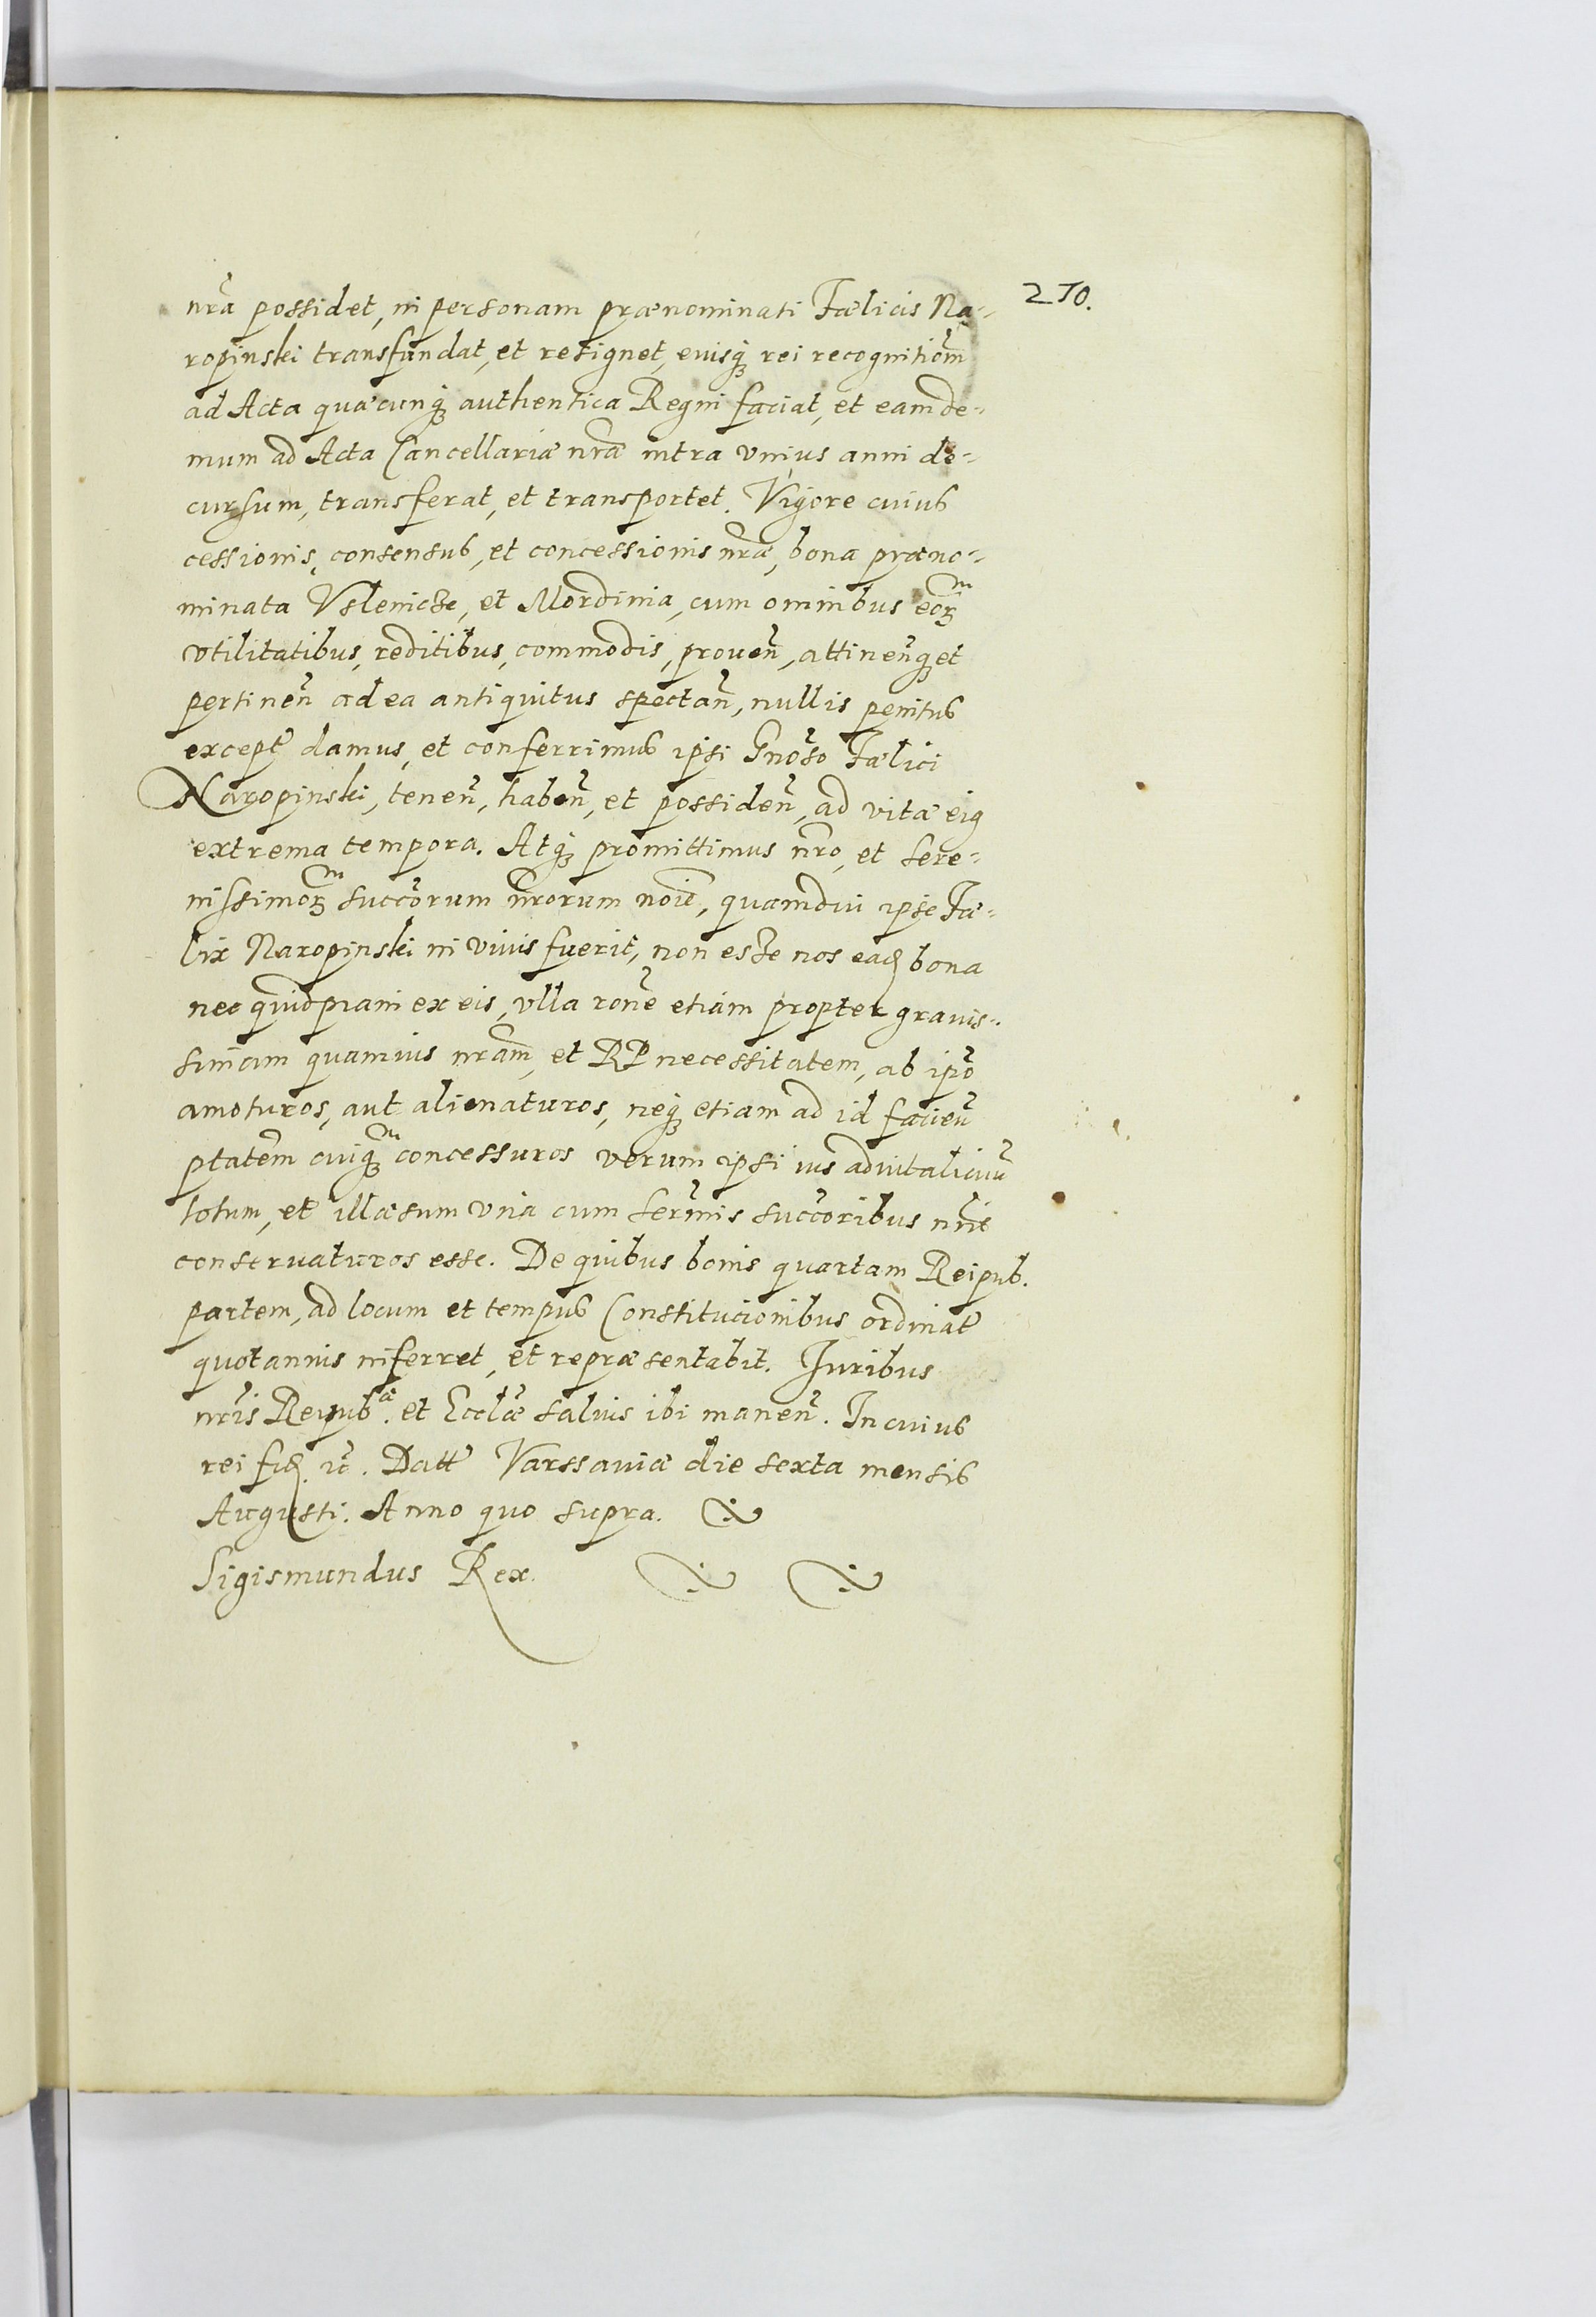 210.
nr̃a possidet, in personam prænominati Fælicis Na-
ropinski transfundat, et resignet, eiusq́ꝫ rei recognitiom̃
ad Acta quæcunq́ꝫ authentica Regni faciat, et eam de-
mum ad Acta Cancellariæ nr̃æ intra vnius anni de-
cursum, transferat, et transportet. Vigore cuius
cessionis, consensus, et concessionis nr̃æ, bona præno-
minata Vslenicze, et Mordinia, cum omnibus eoꝝm
vtilitatibus, reditibus, commodis, proueñ, attineñqꝫ et
pertineñ ad ea antiquitus spectañ, nullis penitus
except̃ damus, et conferrimus ipsi Gnõso Fælici
Naropinski, teneñ, habeñ, et possideñ, ad vitæ eiꝰ
extrema tempora. Atq́ꝫ promittimus nr̃o, et Sere-
nissimoꝝm succõrum nr̃orum noiẽ, quamdiu ipse Fæ-
lix Naropinski in viuis fuerit, non esze nos eaꝺ bona
nec quidpiam ex eis, vlla ronẽ etiam propter grauis-
simam quamuis nr̃am, et RP necessitatem, ab ip̃o
amoturos, aut alienaturos, neq́ꝫ etiam ad id facieñ
ptatem̃ cuiqꝫm concessuros verum ipsi ius aduitaliciũ
totum, et illæsum vna cum Serm̃is succõribus nr̃is
conseruaturos esse. De quibus bonis quartam Reipub.
partem, ad locum et tempus Constitucionibus ordinat̃
quotannis inferret, et repræsentabit. Iuribus
nr̃is Reipubæ. et Ecclæ̃ saluis ibi maneñ. In cuius
rei fiꝺ. ꝛc̃. Datt̃ Varssauiæ die sexta mensis
Augusti. Anno quo supra.
Sigismundus Rex.